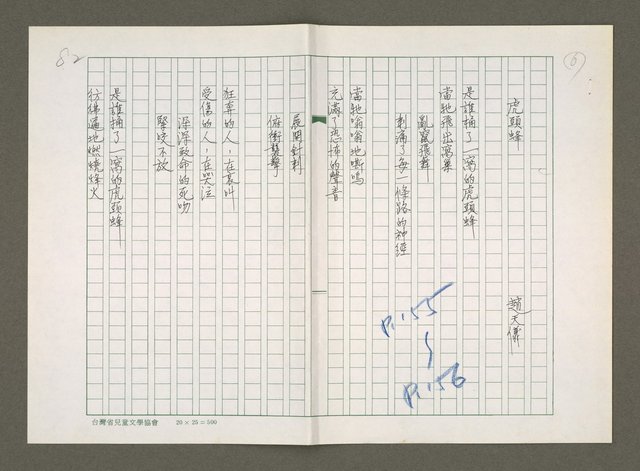 6
虎頭蜂
趙天儀
是誰捅了一窩的虎頭蜂
當牠飛出窩巢
亂竄飛舞
刺痛了每一條路的神經
當牠嗡嗡地鳴
充滿了恐怖的聲音
展開針刺
俯衝襲擊
狂奔的人,在哀叫
受傷的人,在哭泣
深深致命的死吻
緊咬不放
是誰捅了一窩的虎頭蜂
彷彿遍地燃燒烽火
P.155
P.156
82
台灣省兒童文學協會 20×25=500